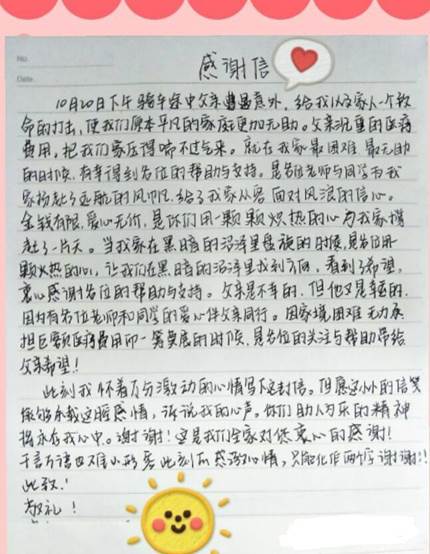 No.
Date.
感谢信
10月20日下午骑车途中父亲遭遇意外，给我以及家人一个致
命的打击，使我们原本平凡的家庭更加无助。父亲沉重的医疗
费用，把我们家压得喘不过气来。就在我家最困难最无助
的时候，有幸得到各位的帮助与支持。是各位老师与同学为我
家扬起了远航的风帆，给了我家从容面对风浪的信心。
金钱有限，爱心无价，是你们用一颗颗炽热的心为我家撑
起了一片天。当我家在黑暗的沼泽里盘旋的时候，是各位用
颗火热的心，让我们在黑暗的沼泽里找到方向，看到了希望，
衷心感谢各位的帮助与支持。父亲是不幸的，但他又是幸运的，
因为有各位老师和同学的爱心伴父亲同行。因家境困难无力承
担巨额医疗费用
的时候，是各位的关注与帮助带给
父亲希望！
此刻我怀着万分激动的心情写下这封信。但愿这小小的信笺
能够承载这份感情，诉说我的心声。你们助人为乐的精神
将永存我心中。谢谢！这是我们全家对您衷心的感谢！
千言万语也难以形容此刻的感激心情，只能化作两个字谢谢！
此致！
敬礼！